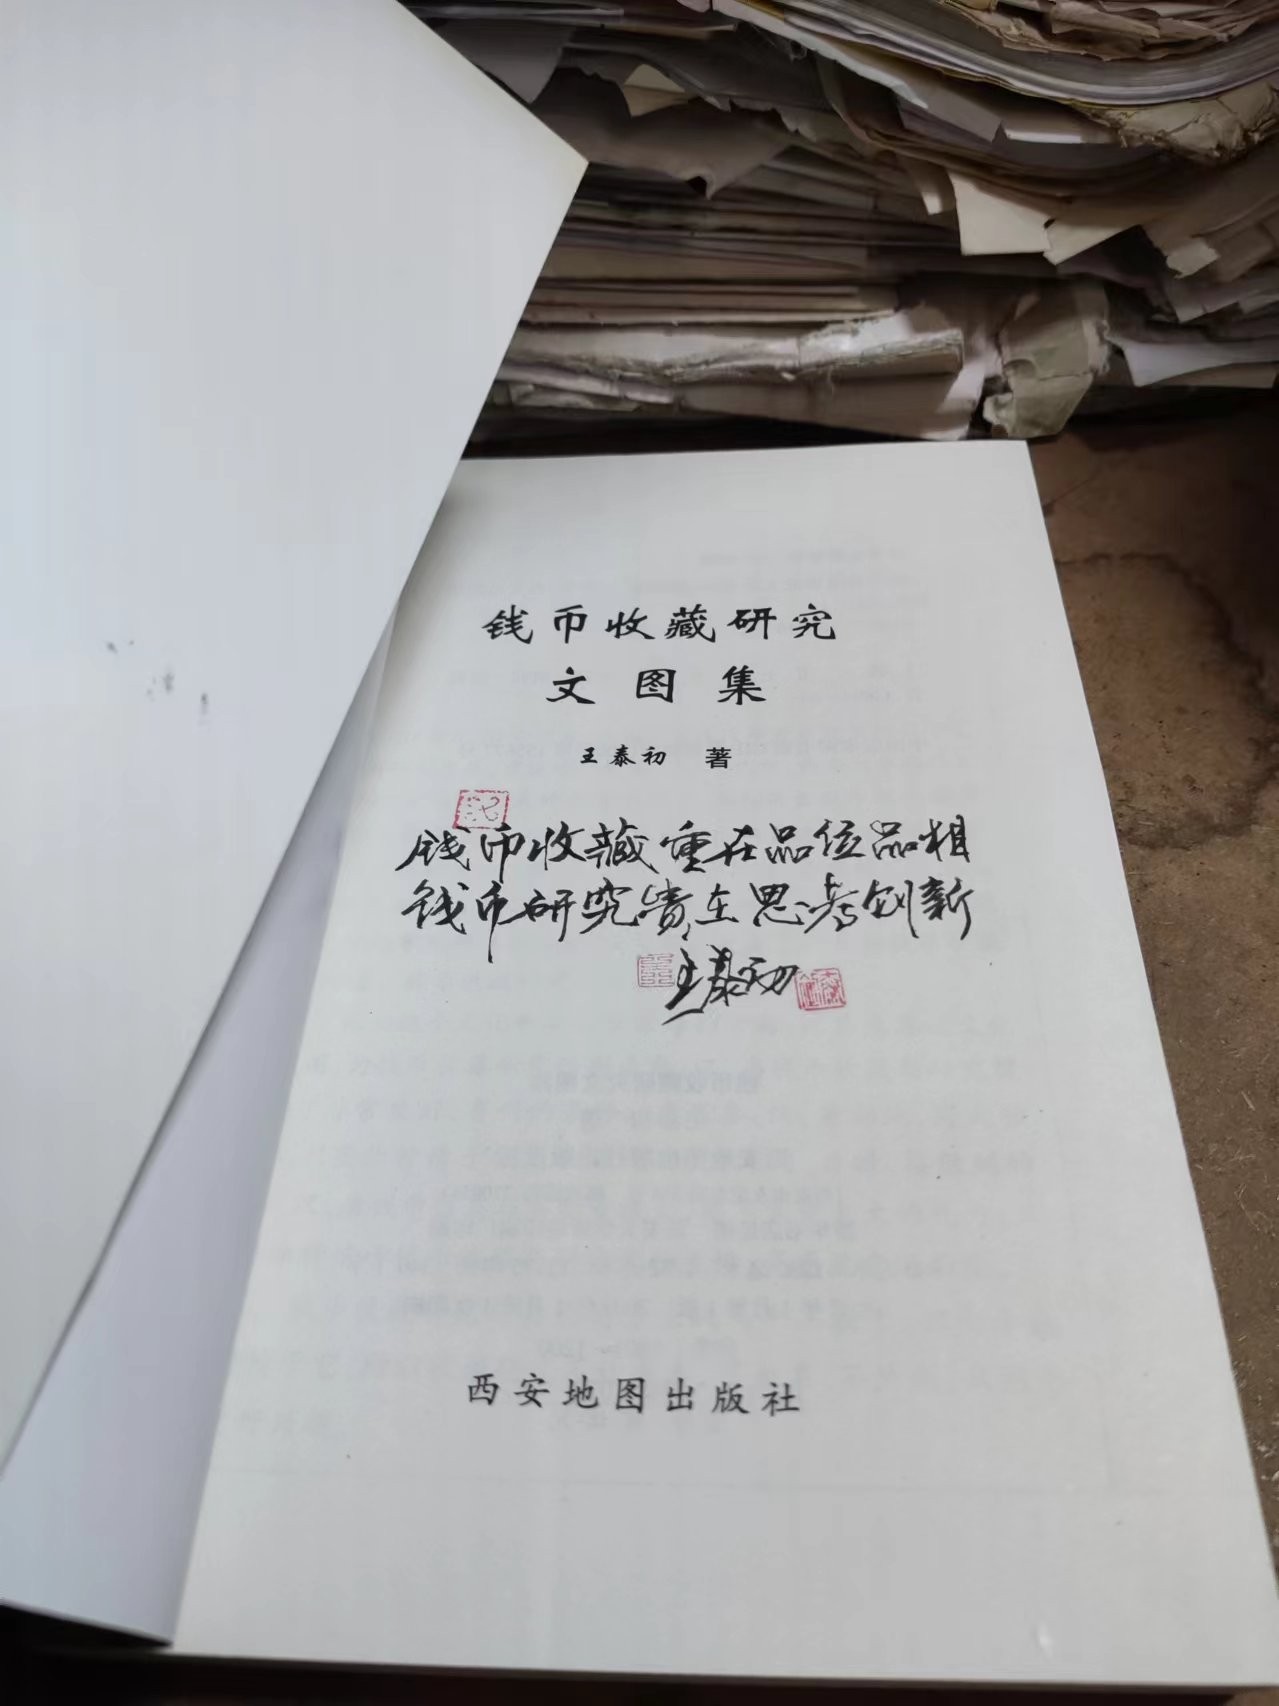 钱币收藏研究
文图集
王泰初 著
钱币收藏重在品位品相
钱币研究贵在思考创新
王泰初
西安地图出版社